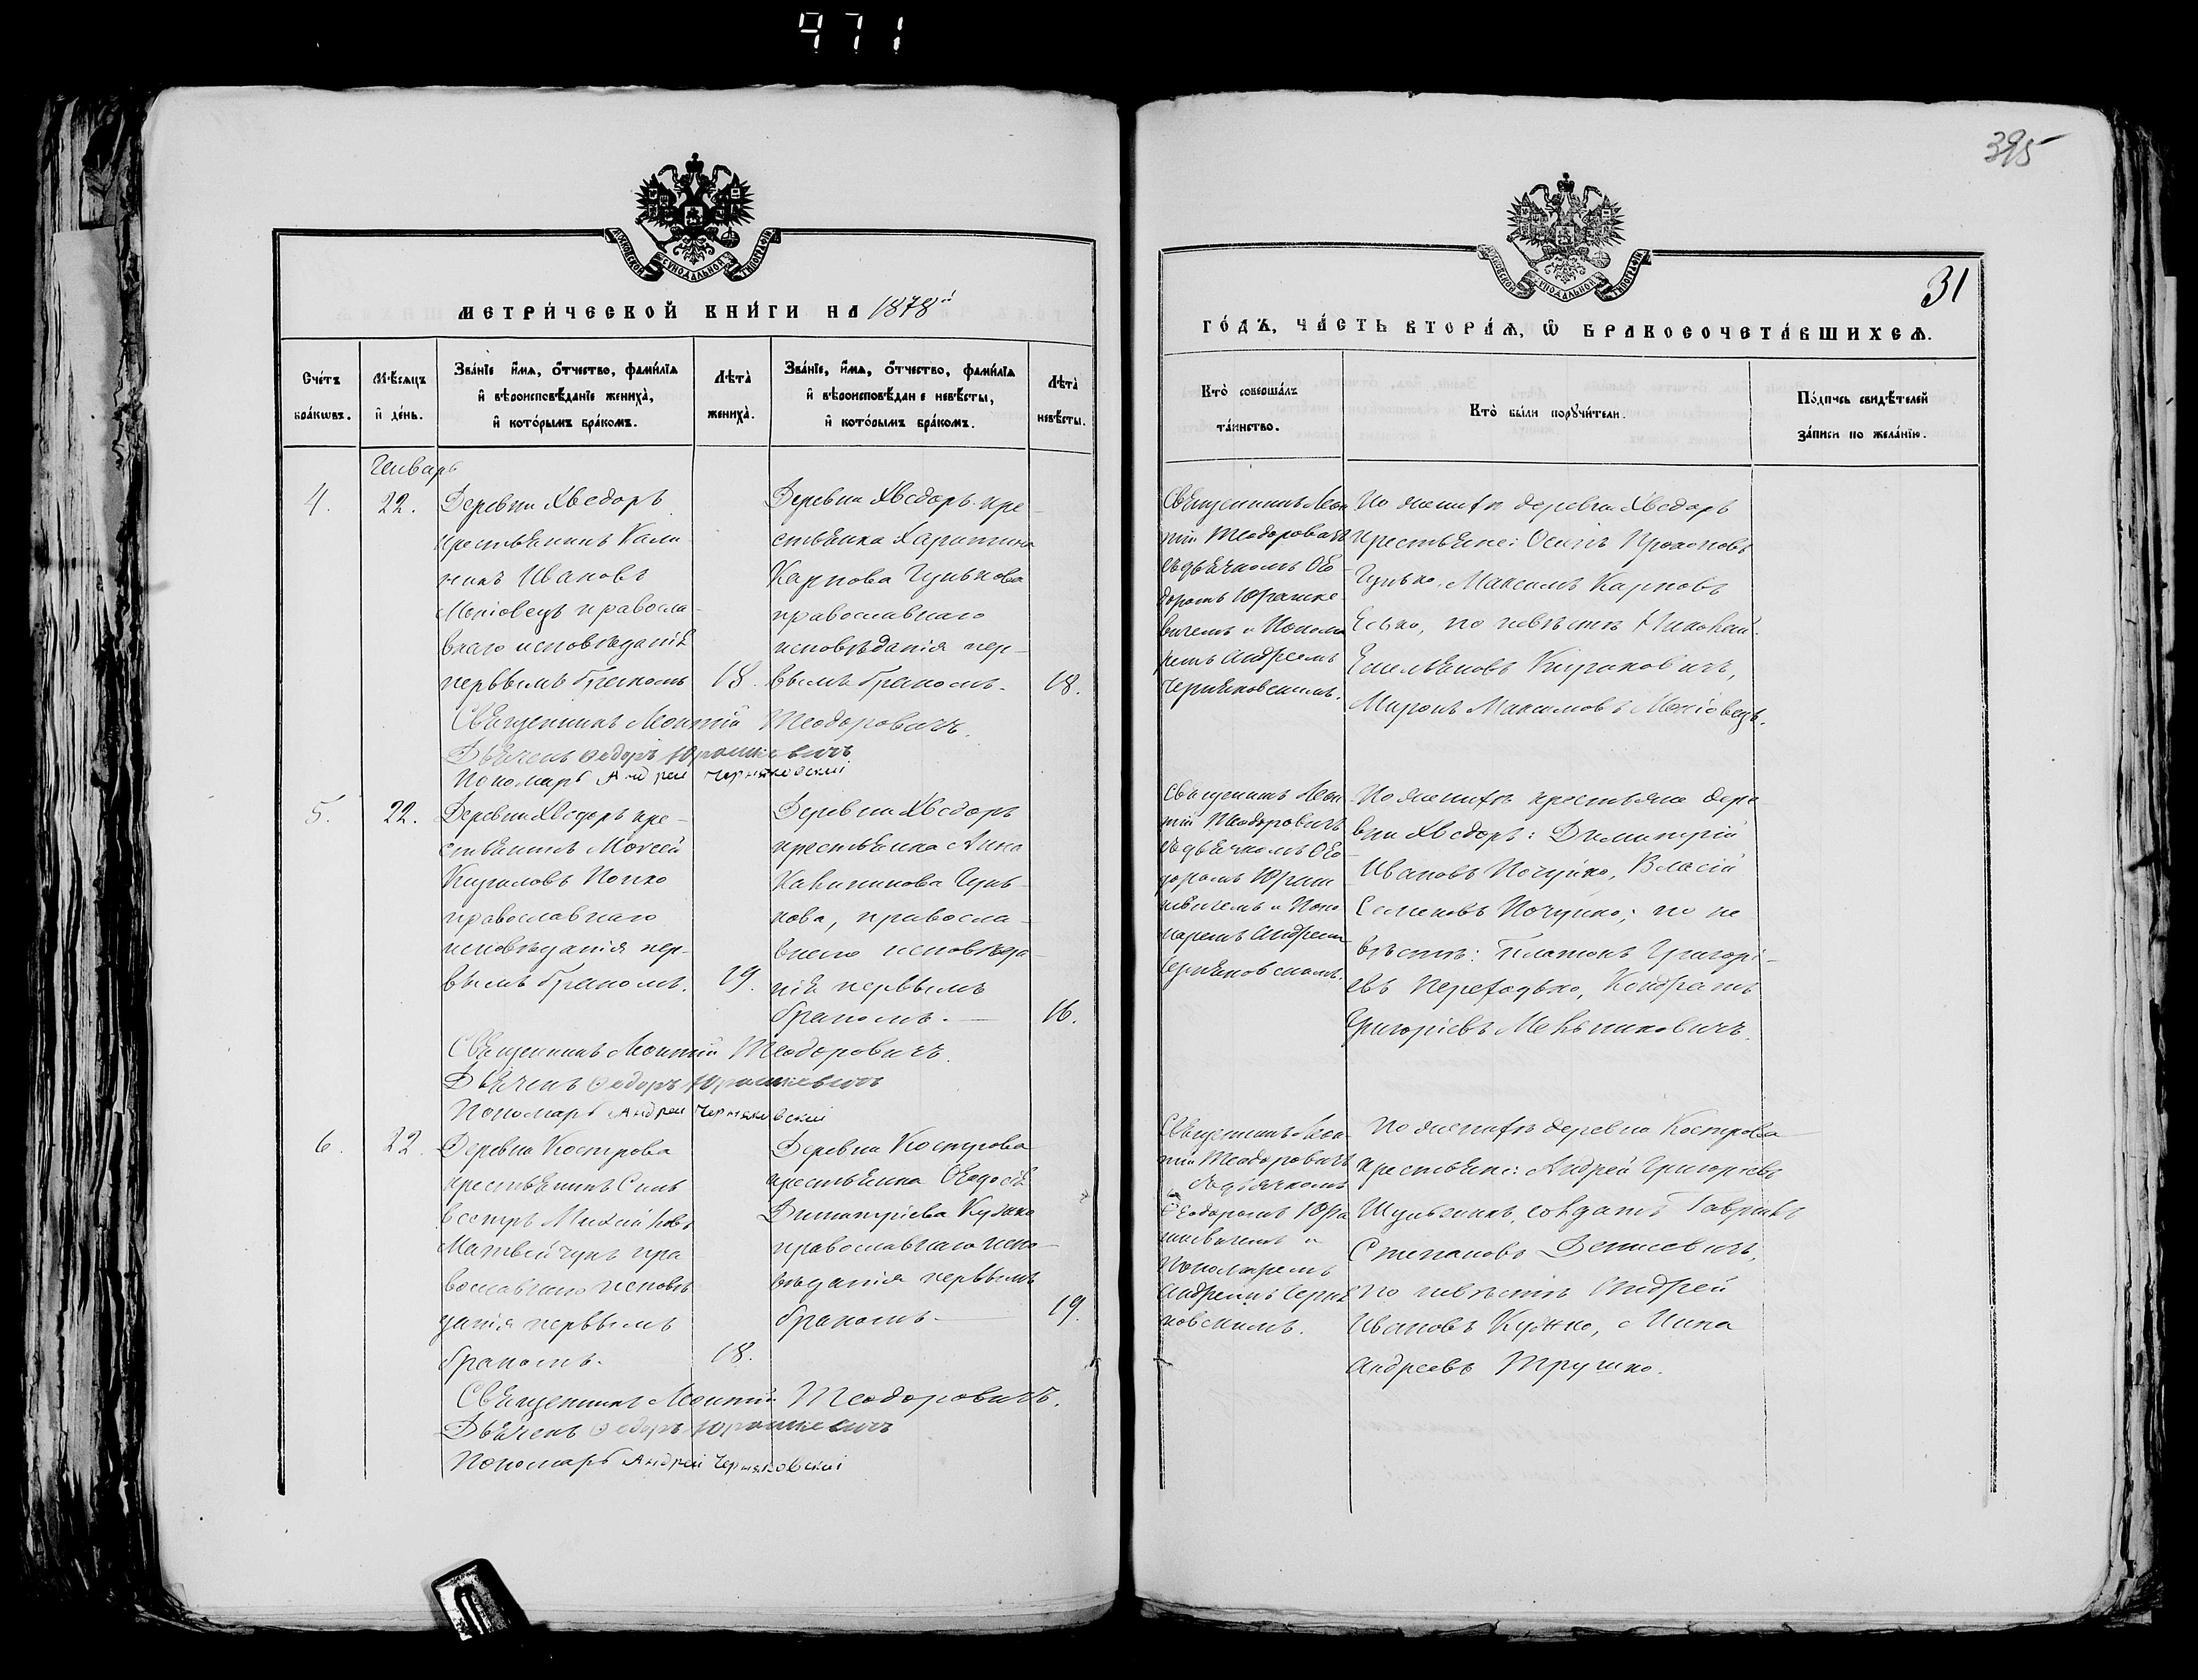 471
395
31
МОСКОВСКОЙ СѴНОДАЛЬНОЙ ТИПОГРАФІИ
МЕТРИ́ЧЕСКОЙ КНИ́ГИ НА 1878й
Сче́тъ бра́кѡвъ.
Мѣ́сяцъ и҆ де́нь.
Зва́нїе и҆́мѧ, ѻ҆́тчество, фамѝлїа
и҆ вѣроисповѣ́данїе жениха̀,
и҆ кото́рымъ бра́комъ.
Лѣта̀ жениха̀.
Зва́нїе, и҆́мѧ, ѻ҆́тчество, фамѝлїа
и҆ вѣроисповѣ́дан е невѣ́сты,
и҆ кото́рымъ бра́комъ.
Лѣта̀ невѣ́сты.
Январь
4.
22.
Деревни Хведоръ
крестьянинъ Кали
никъ Ивановъ
правосла-
внаго исповѣданія
первымъ бракомъ
18.
Деревни Хведоръ кре-
стьянка Харитина
Карпова Гунькова
православнаго
исповѣданія пер-
вымъ бракомъ.
18.
Священникъ Леонтій Теодоровичъ.
Дьячекъ Федоръ Юрашкевичъ
Пономарь Андрей Черняковскій
5.
22.
Деревни Хведоръ кре-
стьянинъ Моисей
Кириловъ Попко
православнаго
исповѣданія пер-
вымъ бракомъ.
19.
Деревни Хведоръ
крестьянка Анна
Калиникова Гунь-
кова, правосла-
внаго исповѣда-
нія первымъ
бракомъ.
16.
Священникъ Леонтій Теодоровичъ
Дьячекъ Федоръ Юрашкевичъ
Пономарь Андрей Черняковскій
6.
22.
Деревни Кострова
крестьянинъ Силь
вестръ Михайловъ
Матвейчукъ пра
вославнаго исповѣ
данія первымъ
бракомъ.
18.
Деревни Кострова
крестьянка Ѳеодосія
Димитріева
православнаго испо-
вѣданія первымъ
бракомъ
19.
Священникъ Леонтій Теодоровичъ.
Дьячекъ Федоръ Юрашкевичъ
Пономарь Андрей Черняковскій
МОСКОВСКОЙ СѴНОДАЛЬНОЙ ТИПОГРАФІИ
ГО́ДЪ, ЧА́СТЬ ВТОРА́Ѧ, Ѡ҆ БРАКОСОЧЕТА́ВШИХСѦ.
Кто̀ соверша́лъ та́инство.
Кто̀ бы́ли порꙋчи́тели.
По́дпись свидѣ́телей за́писи по жела́нїю.
Священникъ Леон
тій Теодоровичъ
съ дьячкомъ Ѳео
доромъ Юрашке-
вичемъ и Понома
ремъ Андреемъ
Черняковскимъ.
По женихѣ деревни Хведоръ
крестьяне: Осипъ Прокоповъ
Гунько, Максимъ Карповъ
по невѣстѣ Николай
Емельяновъ
Миронъ Максимовъ
Священникъ Леон
тій Теодоровичъ
съ дьячкомъ Ѳео
доромъ Юраш
кевичемъ и Поно
маремъ Андреемъ
Черняковскимъ.
По женихѣ крестьяне дере-
вни Хведоръ: Димитрій
Ивановъ Почуйко, Власій
Семеновъ Почуйко; по не
вѣстѣ: Платонъ Григорі-
евъ Переходько, Кондратъ
Григоріевъ Мельниковичъ.
Священникъ Леон-
тій Теодоровичъ
съ дьячкомъ
Ѳеодоромъ Юра
шкевичемъ и
Пономаремъ
Андреемъ Черня
ковскимъ.
По женихѣ деревни Кострова
крестьяне: Андрей Григоріевъ
солдатъ Гавріилъ
Степановъ Денисевичъ,
по невѣстѣ Андрей
Ивановъ
Андреевъ Трушко.